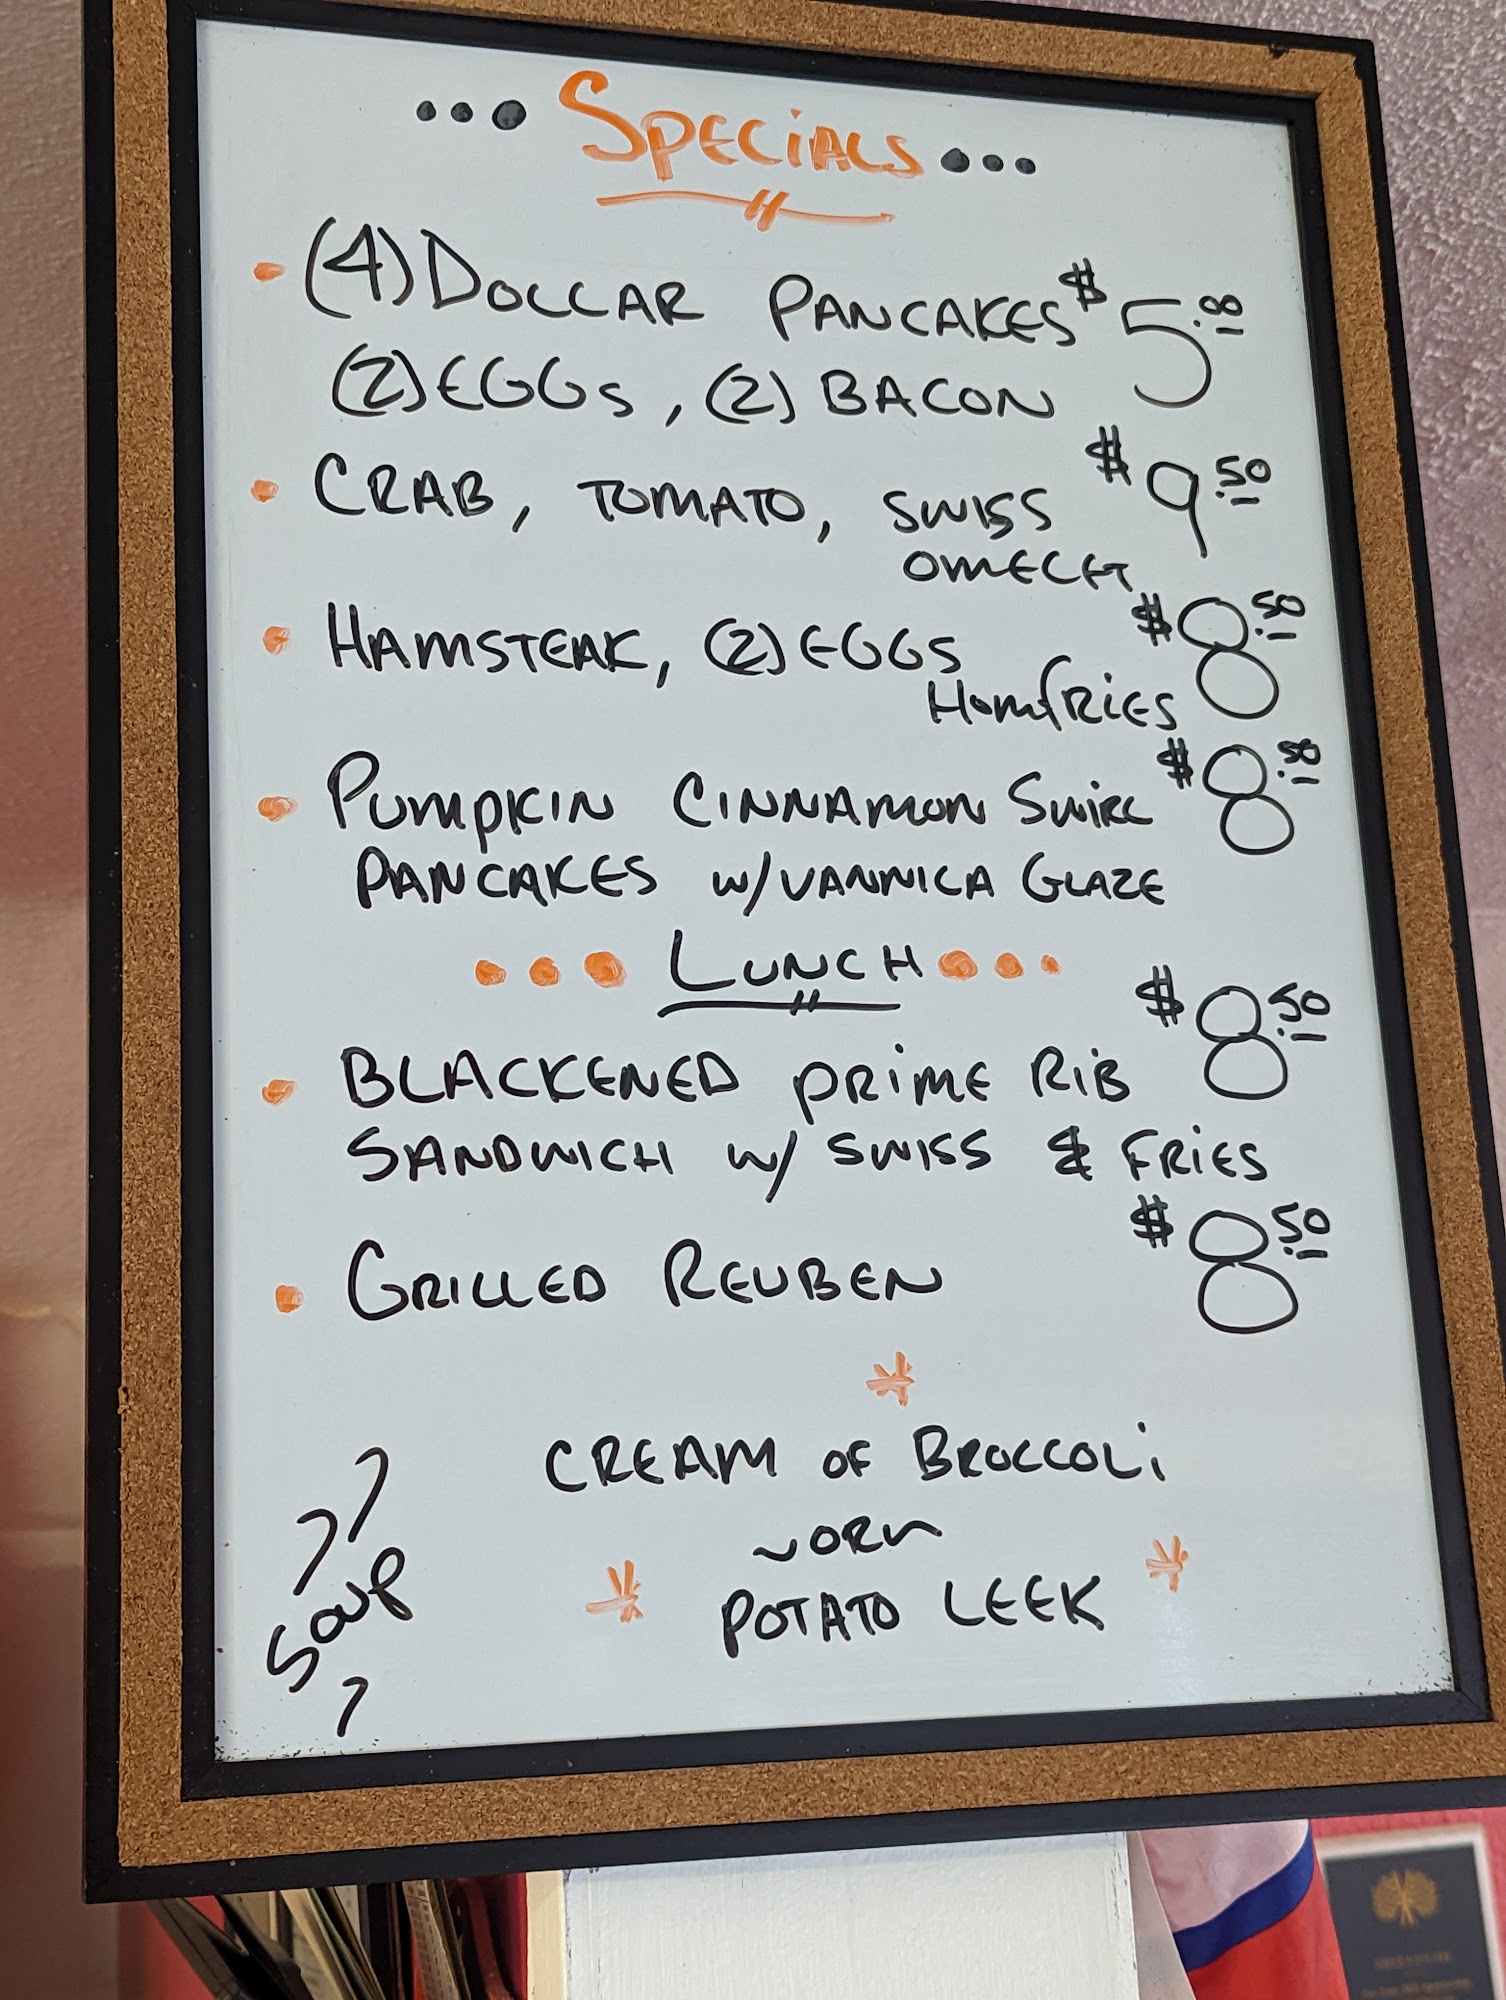 ... Specials ...
• (4) Dollar Pancakes $5.00
(2) Eggs, (2) Bacon
• Crab, Tomato, Swiss $9.50
Omelet
• Hamsteak, (2) Eggs $8.50
Homfries
• Pumpkin Cinnamon Swirl $8.50
Pancakes w/ Vannila Glaze
... Lunch ...
• Blackened Prime Rib $8.50
Sandwich w/ Swiss & Fries
• Grilled Reuben $8.50
Soup
Cream of Broccoli
~ or ~
Potato Leek